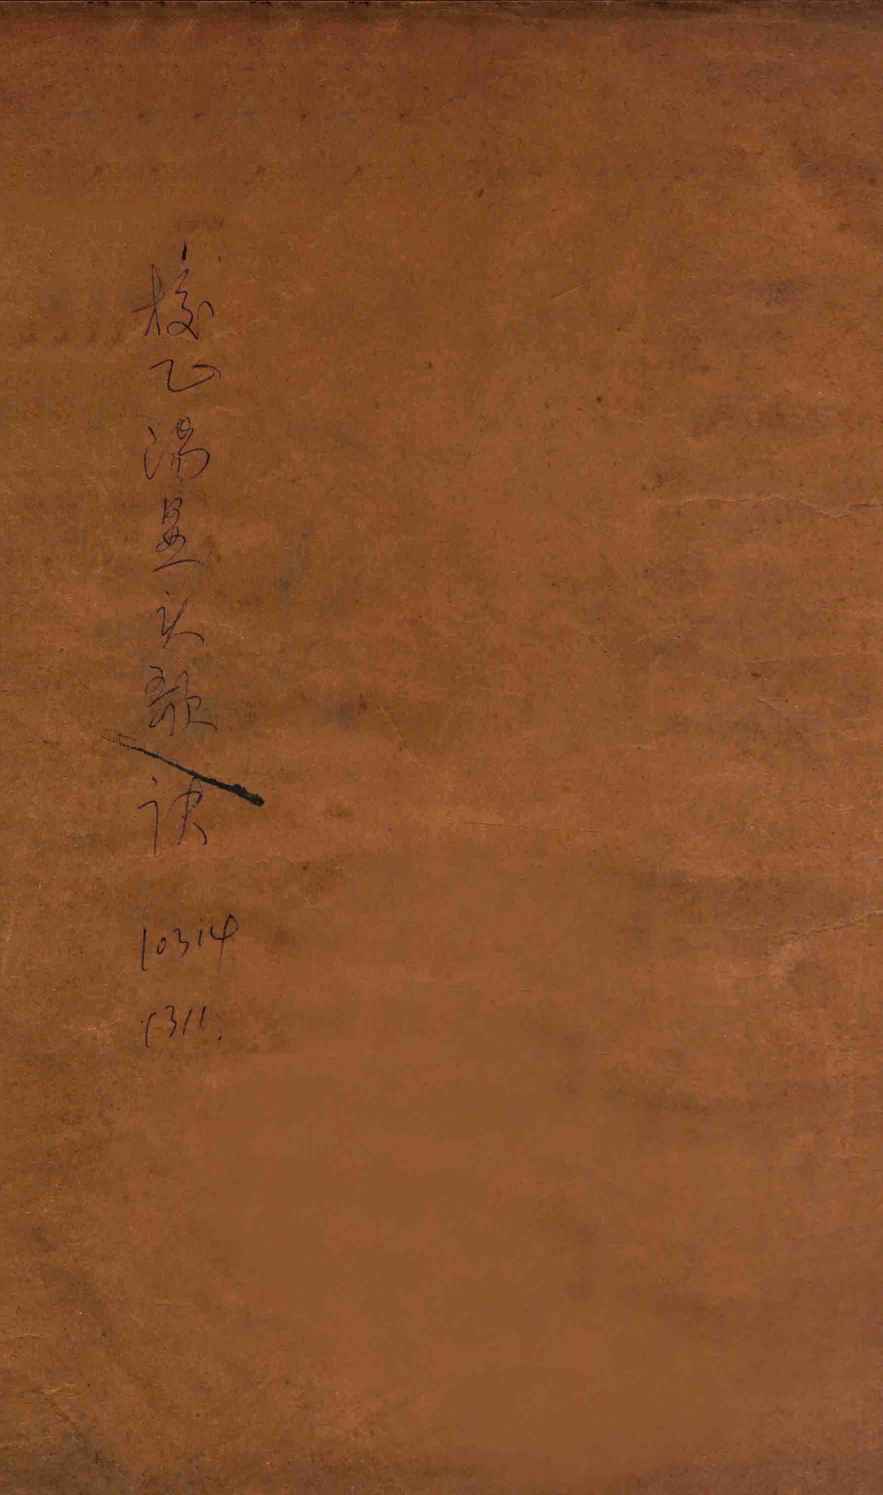 校正湯頭歌訣
10314
1311.